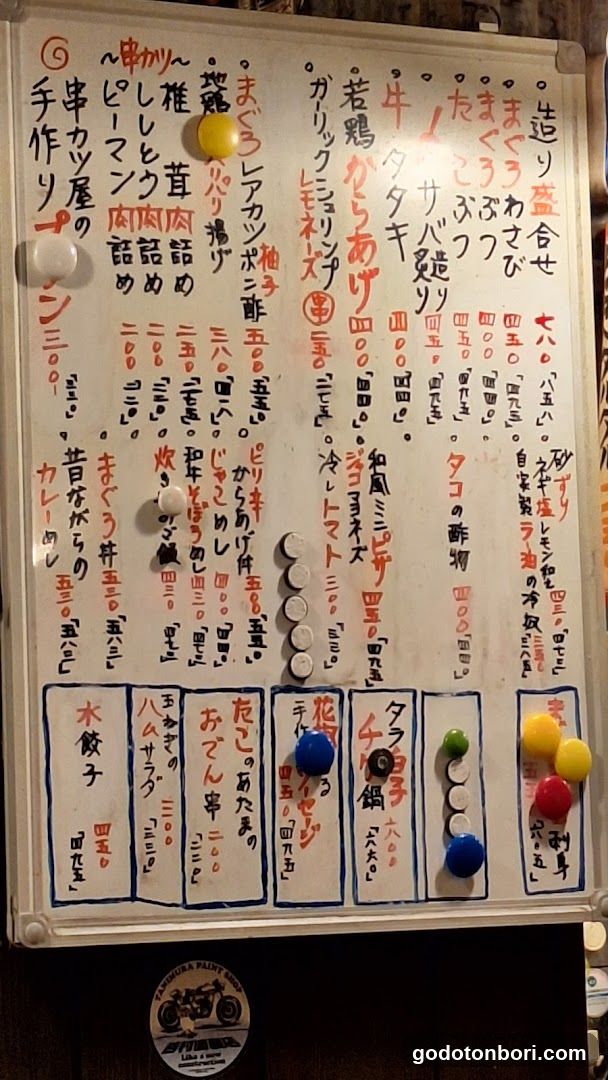 造り盛合せ 七八〇「八五八」
まぐろわさび 四五〇「四九五」
まぐろぶつ 四〇〇「四四〇」
たこぶつ 四五〇「四九五」
サバ造り 炙り 四五〇「四九五」
牛タタキ 四〇〇「四四〇」
若鶏からあげ 四〇〇「四四〇」
ガーリックシュリンプ
レモネーズ 串 二五〇「二七五」
まぐろレアカツポン酢 柚子 五〇〇「五五〇」
地鶏 パリパリ揚げ 三八〇「四一八」
~串カツ~
椎茸肉詰め 二五〇「二七五」
ししとう肉詰め 二〇〇「二二〇」
ピーマン肉詰め 二〇〇「二二〇」
串カツ屋の
手作りプ ン 三〇〇「三三〇」
砂ずり
ネギ塩レモン和え 四三〇「四七三」
自家製ラー油の冷奴 三五〇「三八五」
タコの酢物 四〇〇「四四〇」
和風ミニピザ 四五〇「四九五」
ジャコマヨネーズ
冷しトマト 三〇〇「三三〇」
ピリ辛
からあげ丼 五〇〇「五五〇」
じゃこめし 四〇〇「四四〇」
和牛そぼろめし 四三〇「四七三」
炊き ご飯 四三〇「四七三」
まぐろ丼 五三〇「五八三」
昔ながらの
カレーめし 五三〇「五八三」
ま 刺身 「六〇五」
タラ白子
チ 鍋 六〇〇「六六〇」
花
手作 ーセージ 四五〇「四九五」
たこのあたまの
おでん串 二〇〇「二二〇」
玉ねぎの
ハムサラダ 三〇〇「三三〇」
水餃子 四五〇「四九五」
TANIMURA PAINT SHOP
Like a new
construction
godotonbori.com